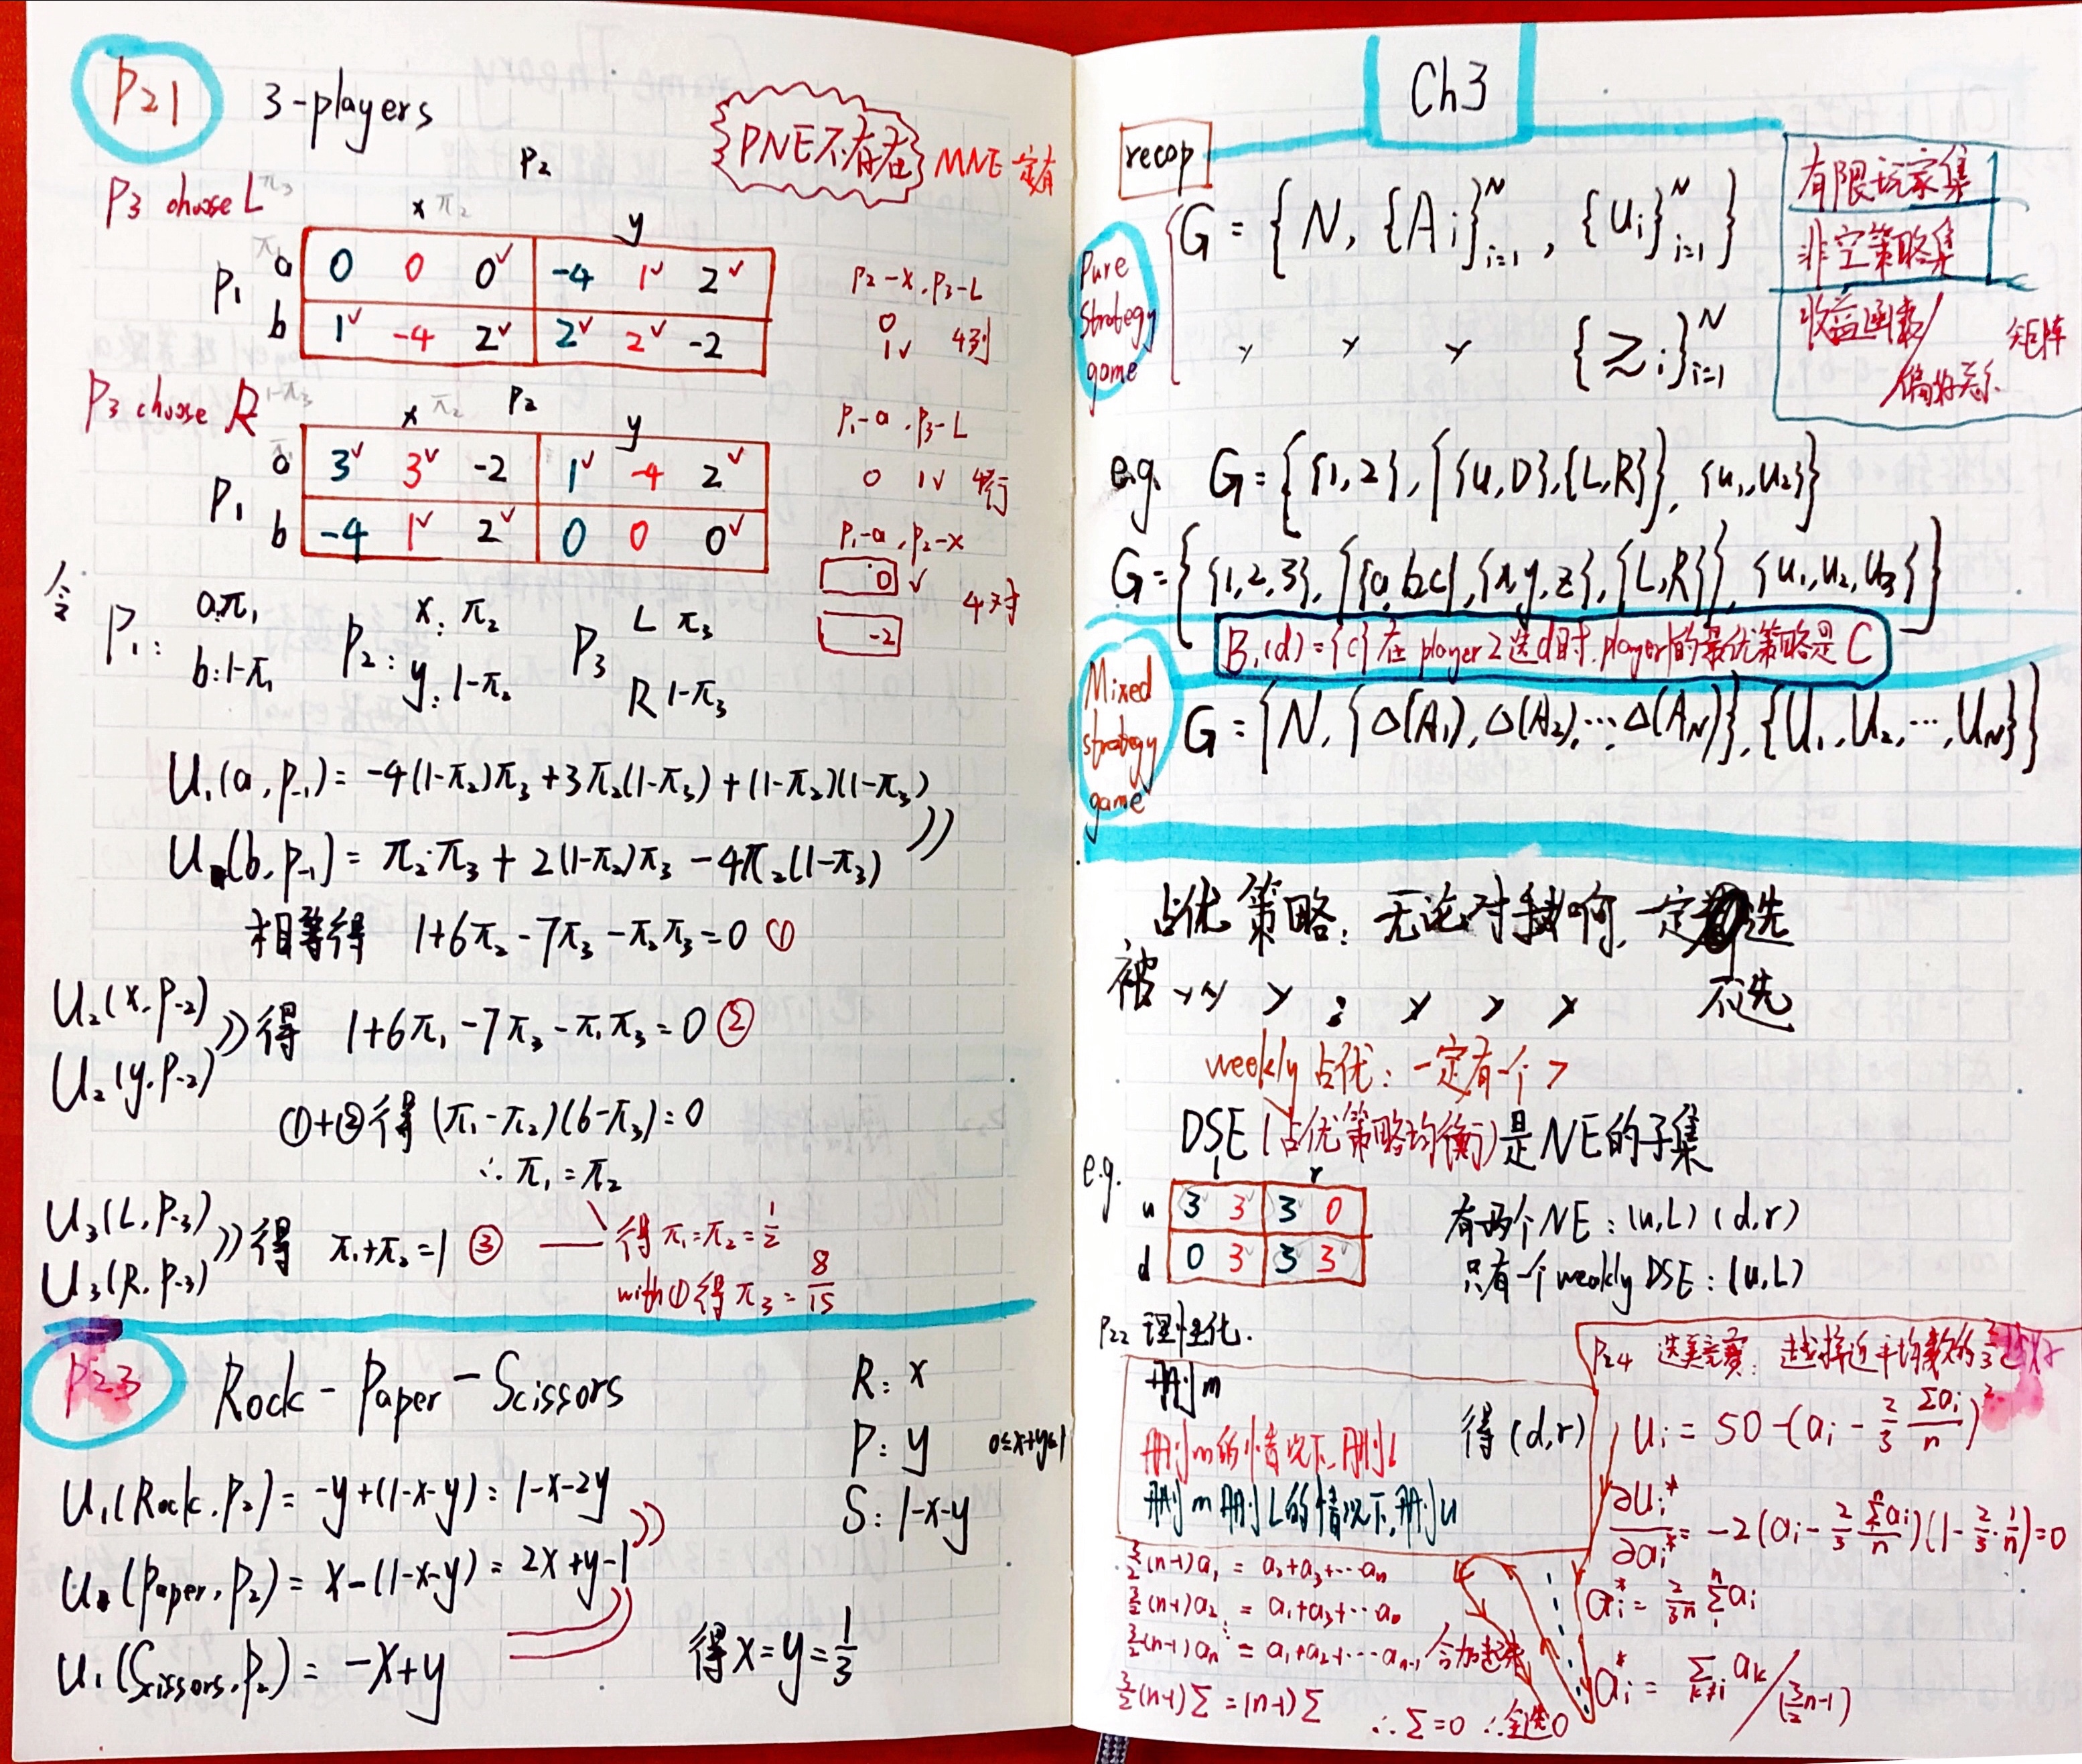 P21 3-players
PNE不存在 MNE一定有
P2
P3 choose L π3
x π2 y
P1 a 0 0 0✓ -4 1✓ 2✓
b 1✓ -4 2✓ 2✓ 2✓ -2
P2-x, P3-L
0
1✓ 4列
P3 choose R 1-π3
x π2 P2 y
P1 a 3✓ 3✓ -2 1✓ -4 2✓
b -4 1✓ 2✓ 0 0 0✓
P1-a, P3-L
0 1✓ 4行
P1-a, P2-x
0 ✓
-2
4对
令 P1: a:π1 P2: x: π2 P3 L π3
b:1-π1 y: 1-π2 R 1-π3
U1(a, p-1) = -4(1-π2)π3 + 3π2(1-π3) + (1-π2)(1-π3)
U1(b, p-1) = π2·π3 + 2(1-π2)π3 - 4π2(1-π3)
相等得 1+6π2-7π3-π2π3=0 ①
U2(x, p-2)
U2(y, p-2)
得 1+6π1-7π3-π1π3=0 ②
①+②得 (π1-π2)(6-π3)=0
∴ π1=π2
U3(L, p-3)
U3(R, p-3)
得 π1+π2=1 ③
得 π1=π2=1/2
with ① 得 π3 = 8/15
P23 Rock-Paper-Scissors
R: x
P: y 0≤x+y≤1
S: 1-x-y
U1(Rock, P2) = -y+(1-x-y) = 1-x-2y
U1(Paper, P2) = x-(1-x-y) = 2x+y-1
U1(Scissors, P2) = -x+y
得 x=y=1/3
Ch3
recap
Pure strategy game
G = { N, {Ai}ᴺi=1, {ui}ᴺi=1 }
{≿i}ᴺi=1
有限玩家集
非空策略集
收益函数/ 矩阵
偏好关系
e.g. G={ {1,2}, {{u,D},{L,R}}, {u1,u2} }
G={ {1,2,3}, {{a,b,c},{x,y,z},{L,R}}, {u1,u2,u3} }
B1(d)={c} 在player 2选d时, player1的最优策略是C
Mixed strategy game
G = { N, {Δ(A1), Δ(A2), ..., Δ(AN)}, {U1, U2, ..., UN} }
占优策略: 无论对手如何, 一定选
被 〃 〃 : 〃 〃 〃 不选
weakly 占优: 一定有个 >
DSE (占优策略均衡) 是NE的子集
e.g. l r
u 3 3 3 0
d 0 3 3 3
有两个NE: (u,L) (d,r)
只有一个weakly DSE: (u,L)
P22 理性化.
删m
删m的情况下,删L
删m删L的情况下,删u
得 (d,r)
P24 选美竞赛: 越接近平均数的2/3
Ui = 50-(ai - 2/3 Σai/n)²
∂Ui*/∂ai* = -2(ai - 2/3 Σai/n)(1 - 2/3·1/n)=0
ai* = 2/3n Σai
ai* = Σk≠i ak/(3/2n-1)
3/2(n-1)a1 = a2+a3+…an
3/2(n-1)a2 = a1+a3+…an
⋮
3/2(n-1)an = a1+a2+…an-1 全加起来
3/2(n-1)Σ = (n-1)Σ
∴Σ=0 ∴全选0